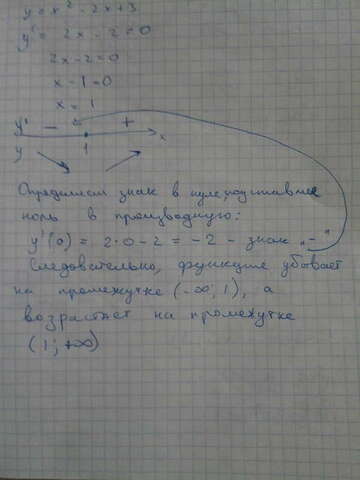 y = x² - 2x + 3
y' = 2x - 2 = 0
2x - 2 = 0
x - 1 = 0
x = 1
y' - + x
y 1
Определяем знак в нуле, подставляя
ноль в производную:
y'(0) = 2·0 - 2 = -2 - знак „-"
Следовательно, функция убывает
на промежутке (-∞; 1), а
возрастает на промежутке
(1; +∞)